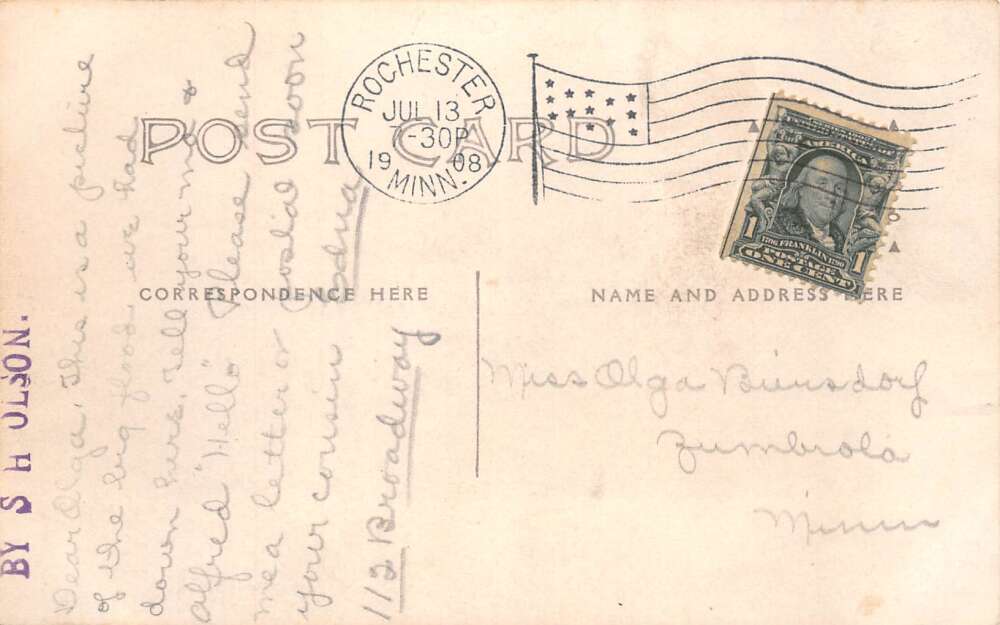 POST CARD
ROCHESTER
JUL 13
-30P
1908
MINN.
UNITED STATES OF AMERICA
1 1
1706 FRANKLIN 1790
POSTAGE
ONE CENT
CORRESPONDENCE HERE
NAME AND ADDRESS HERE
BY S H OLSON.
Dear Olga. This is a picture
of the big flood we had
down here. Tell your ma &
alfred "Hello" Please send
me a letter or postal soon
your cousin Edna
113 Broadway
Miss Olga
Zumbrota
Minn